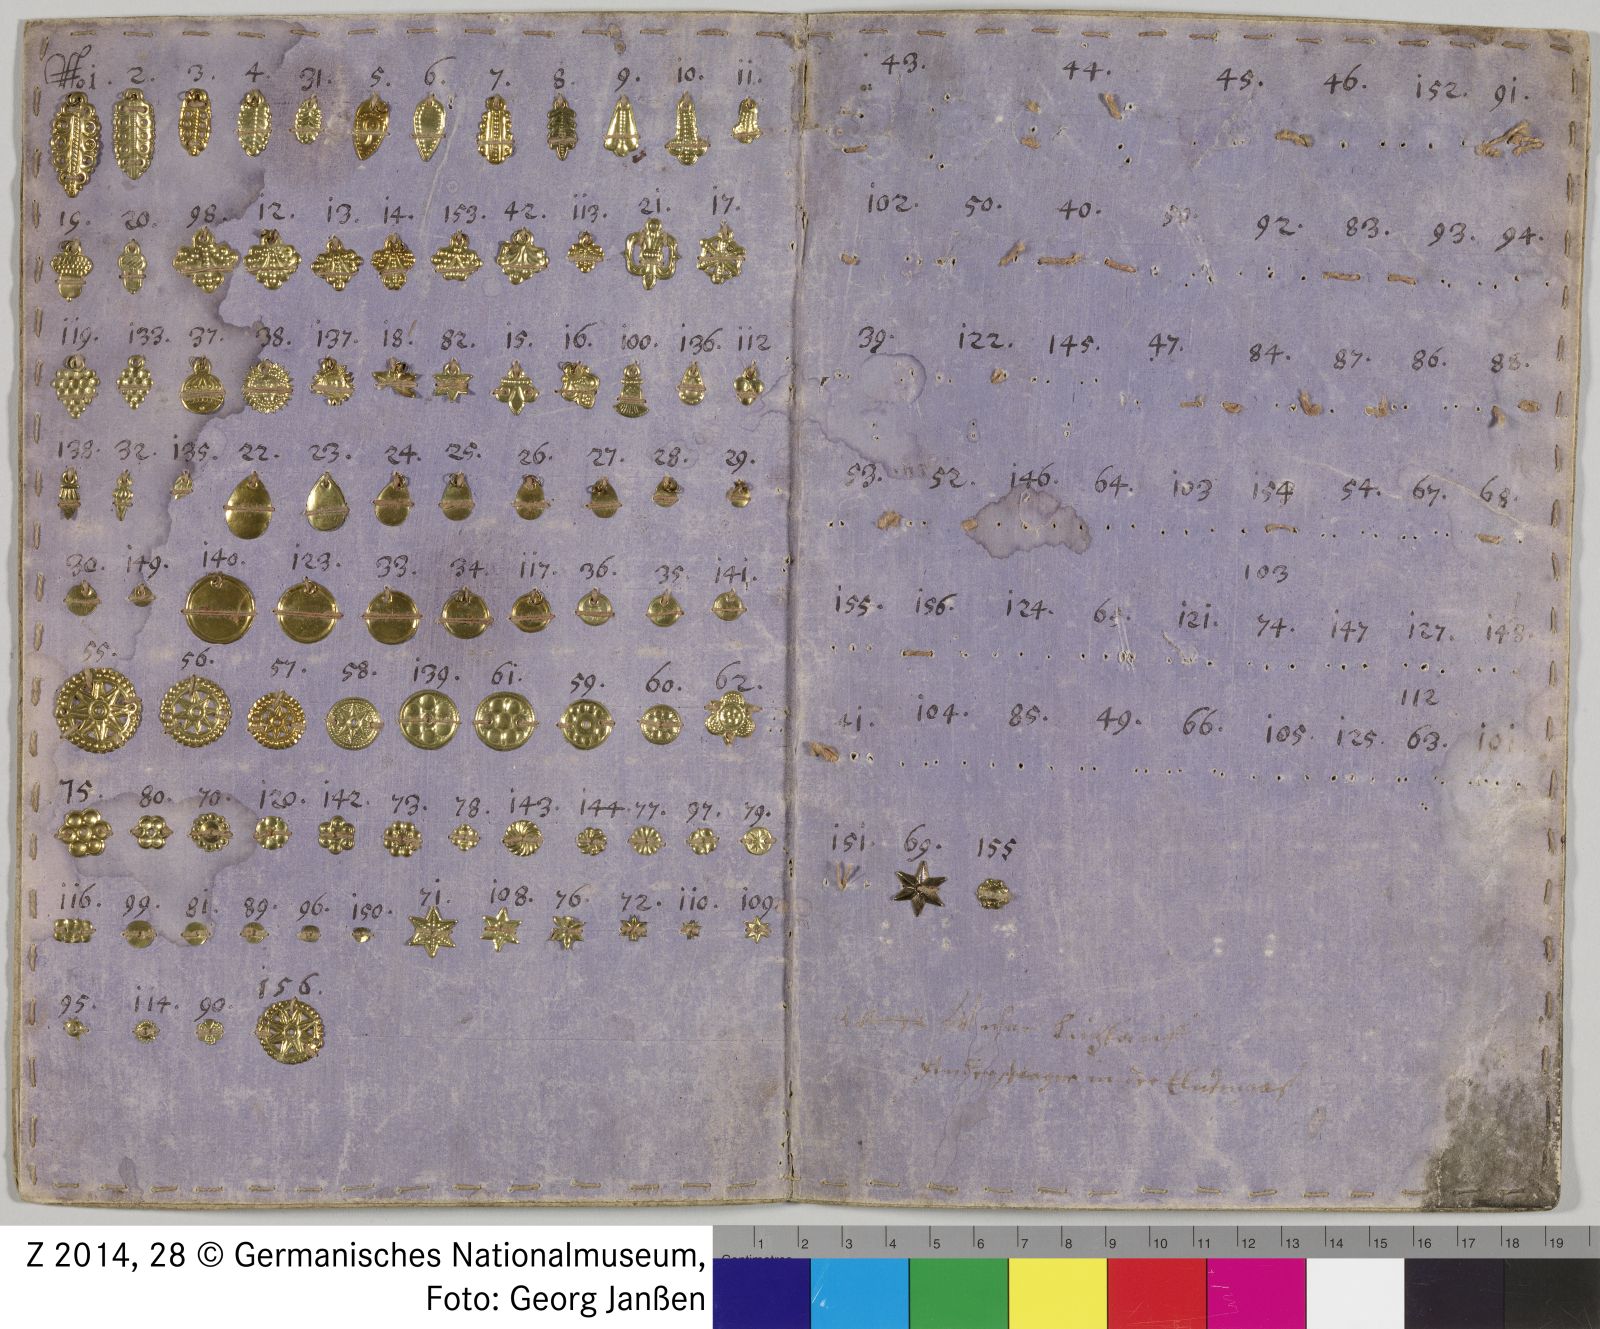 No. 1. 2. 3. 4. 31. 5. 6. 7. 8. 9. 10. 11.
19. 20. 98. 12. 13. 14. 153. 42. 113. 21. 17.
119. 133. 37. 38. 137. 18. 82. 15. 16. 100. 136. 112
138. 32. 135. 22. 23. 24. 25. 26. 27. 28. 29.
30. 149. 140. 123. 33. 34. 117. 36. 35. 141.
55. 56. 57. 58. 139. 61. 59. 60. 62.
75. 80. 70. 120. 142. 73. 78. 143. 144. 77. 97. 79.
116. 99. 81. 89. 96. 150. 71. 108. 76. 72. 110. 109.
95. 114. 90. 156.
43. 44. 45. 46. 152. 91.
102. 50. 40. 92. 83. 93. 94.
39. 122. 145. 47. 84. 87. 86. 88.
53. 52. 146. 64. 103 154 54. 67. 68.
103
155. 156. 124. 121. 74. 147 127. 148.
112
41. 104. 85. 49. 66. 105. 125. 63. 101
151. 69. 155
in der
Z 2014, 28 © Germanisches Nationalmuseum,
Foto: Georg Janßen
1 2 3 4 5 6 7 8 9 10 11 12 13 14 15 16 17 18 19
Centimetres